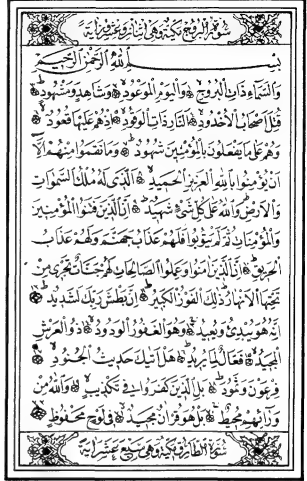 سورة البروج مكية وهى اثنان وعشرون اية
بسم الله الرحمن الرحيم
والسماء ذات البروج واليوم الموعود وشاهد ومشهود
قتل اصحاب الاخدود النار ذات الوقود اذ هم عليها قعود
وهم على ما يفعلون بالمؤمنين شهود وما نقموا منهم الا
ان يؤمنوا بالله العزيز الحميد الذى له ملك السموات
والارض والله على كل شئ شهيد ان الذين فتنوا المؤمنين
والمؤمنات ثم لم يتوبوا فلهم عذاب جهنم ولهم عذاب
الحريق ان الذين امنوا وعملوا الصالحات لهم جنات تجرى من
تحتها الانهار ذلك الفوز الكبير ان بطش ربك لشديد
انه هو يبدئ ويعيد وهو الغفور الودود ذو العرش
المجيد فعال لما يريد هل اتيك حديث الجنود
فرعون وثمود بل الذين كفروا فى تكذيب والله من
ورائهم محيط بل هو قران مجيد فى لوح محفوظ
سورة الطارق مكية وهى سبع عشر اية